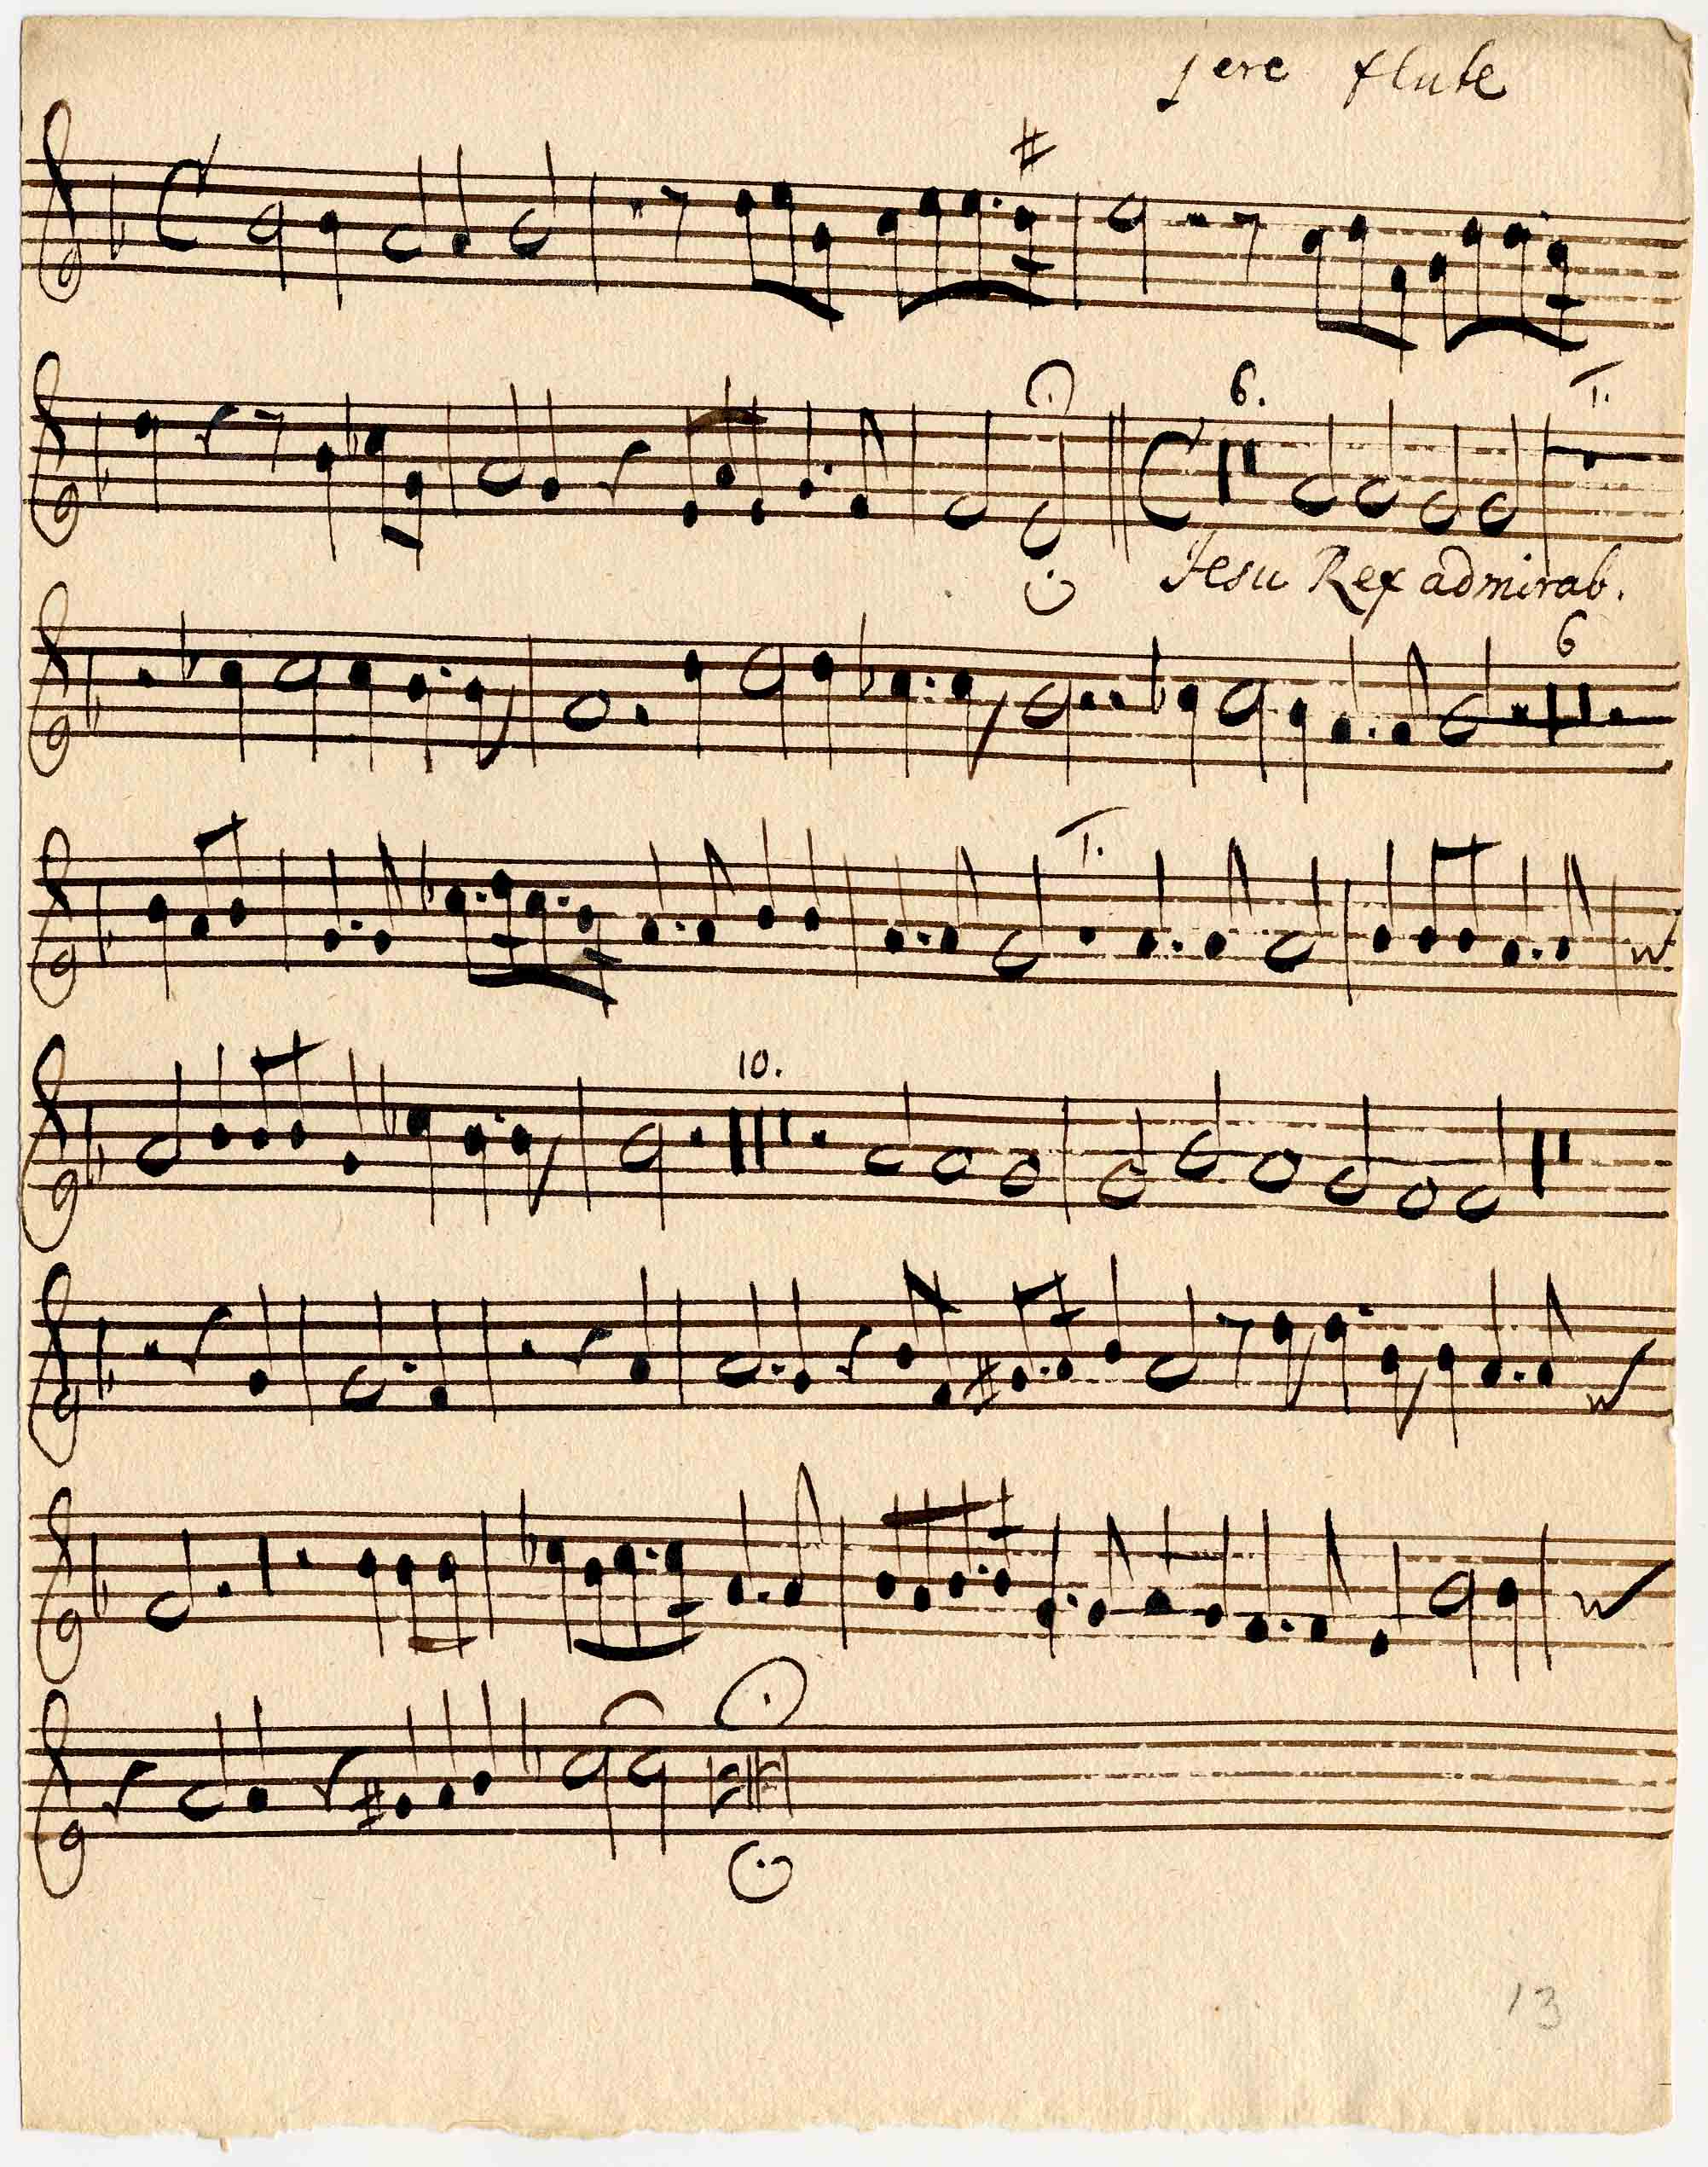 1ere flute
6.
T.
Jesu Rex admirab.
6
T.
10.
13